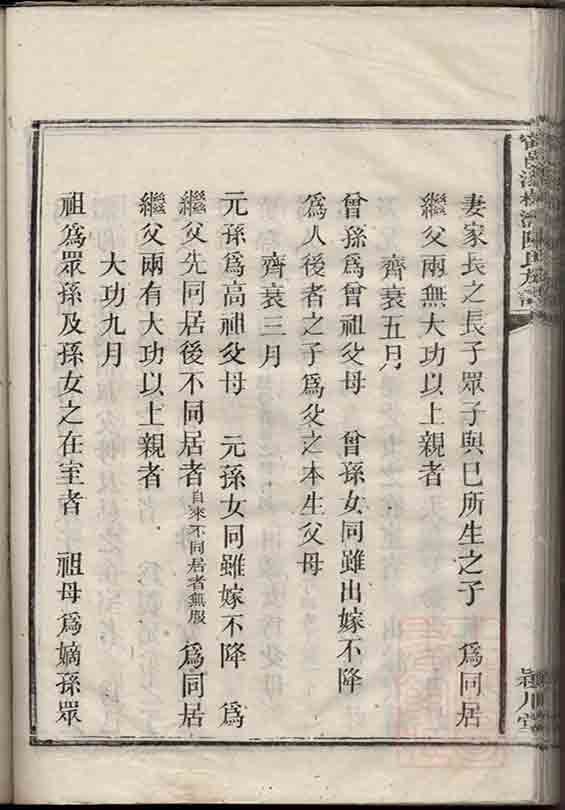 妻家長之長子眾子與巳所生之子　為同居
繼父兩無大功以上親者
齊衰五月
曾孫為曾祖父母　曾孫女同雖出嫁不降
為人後者之子為父之本生父母
齊衰三月
元孫為高祖父母　元孫女同雖嫁不降　為
繼父先同居後不同居者自來不同居者無服　為同居
繼父兩有大功以上親者
大功九月
祖為眾孫及孫女之在室者　祖母為嫡孫眾
陳氏族譜
潁川堂